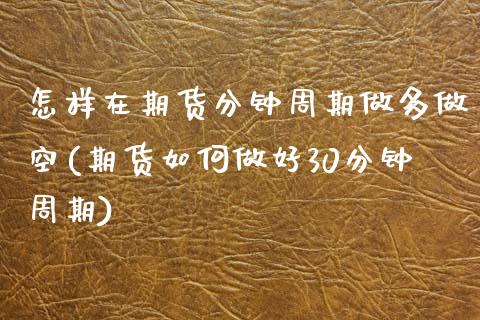 怎样在期货分钟周期做多做
空(期货如何做好30分钟
周期)